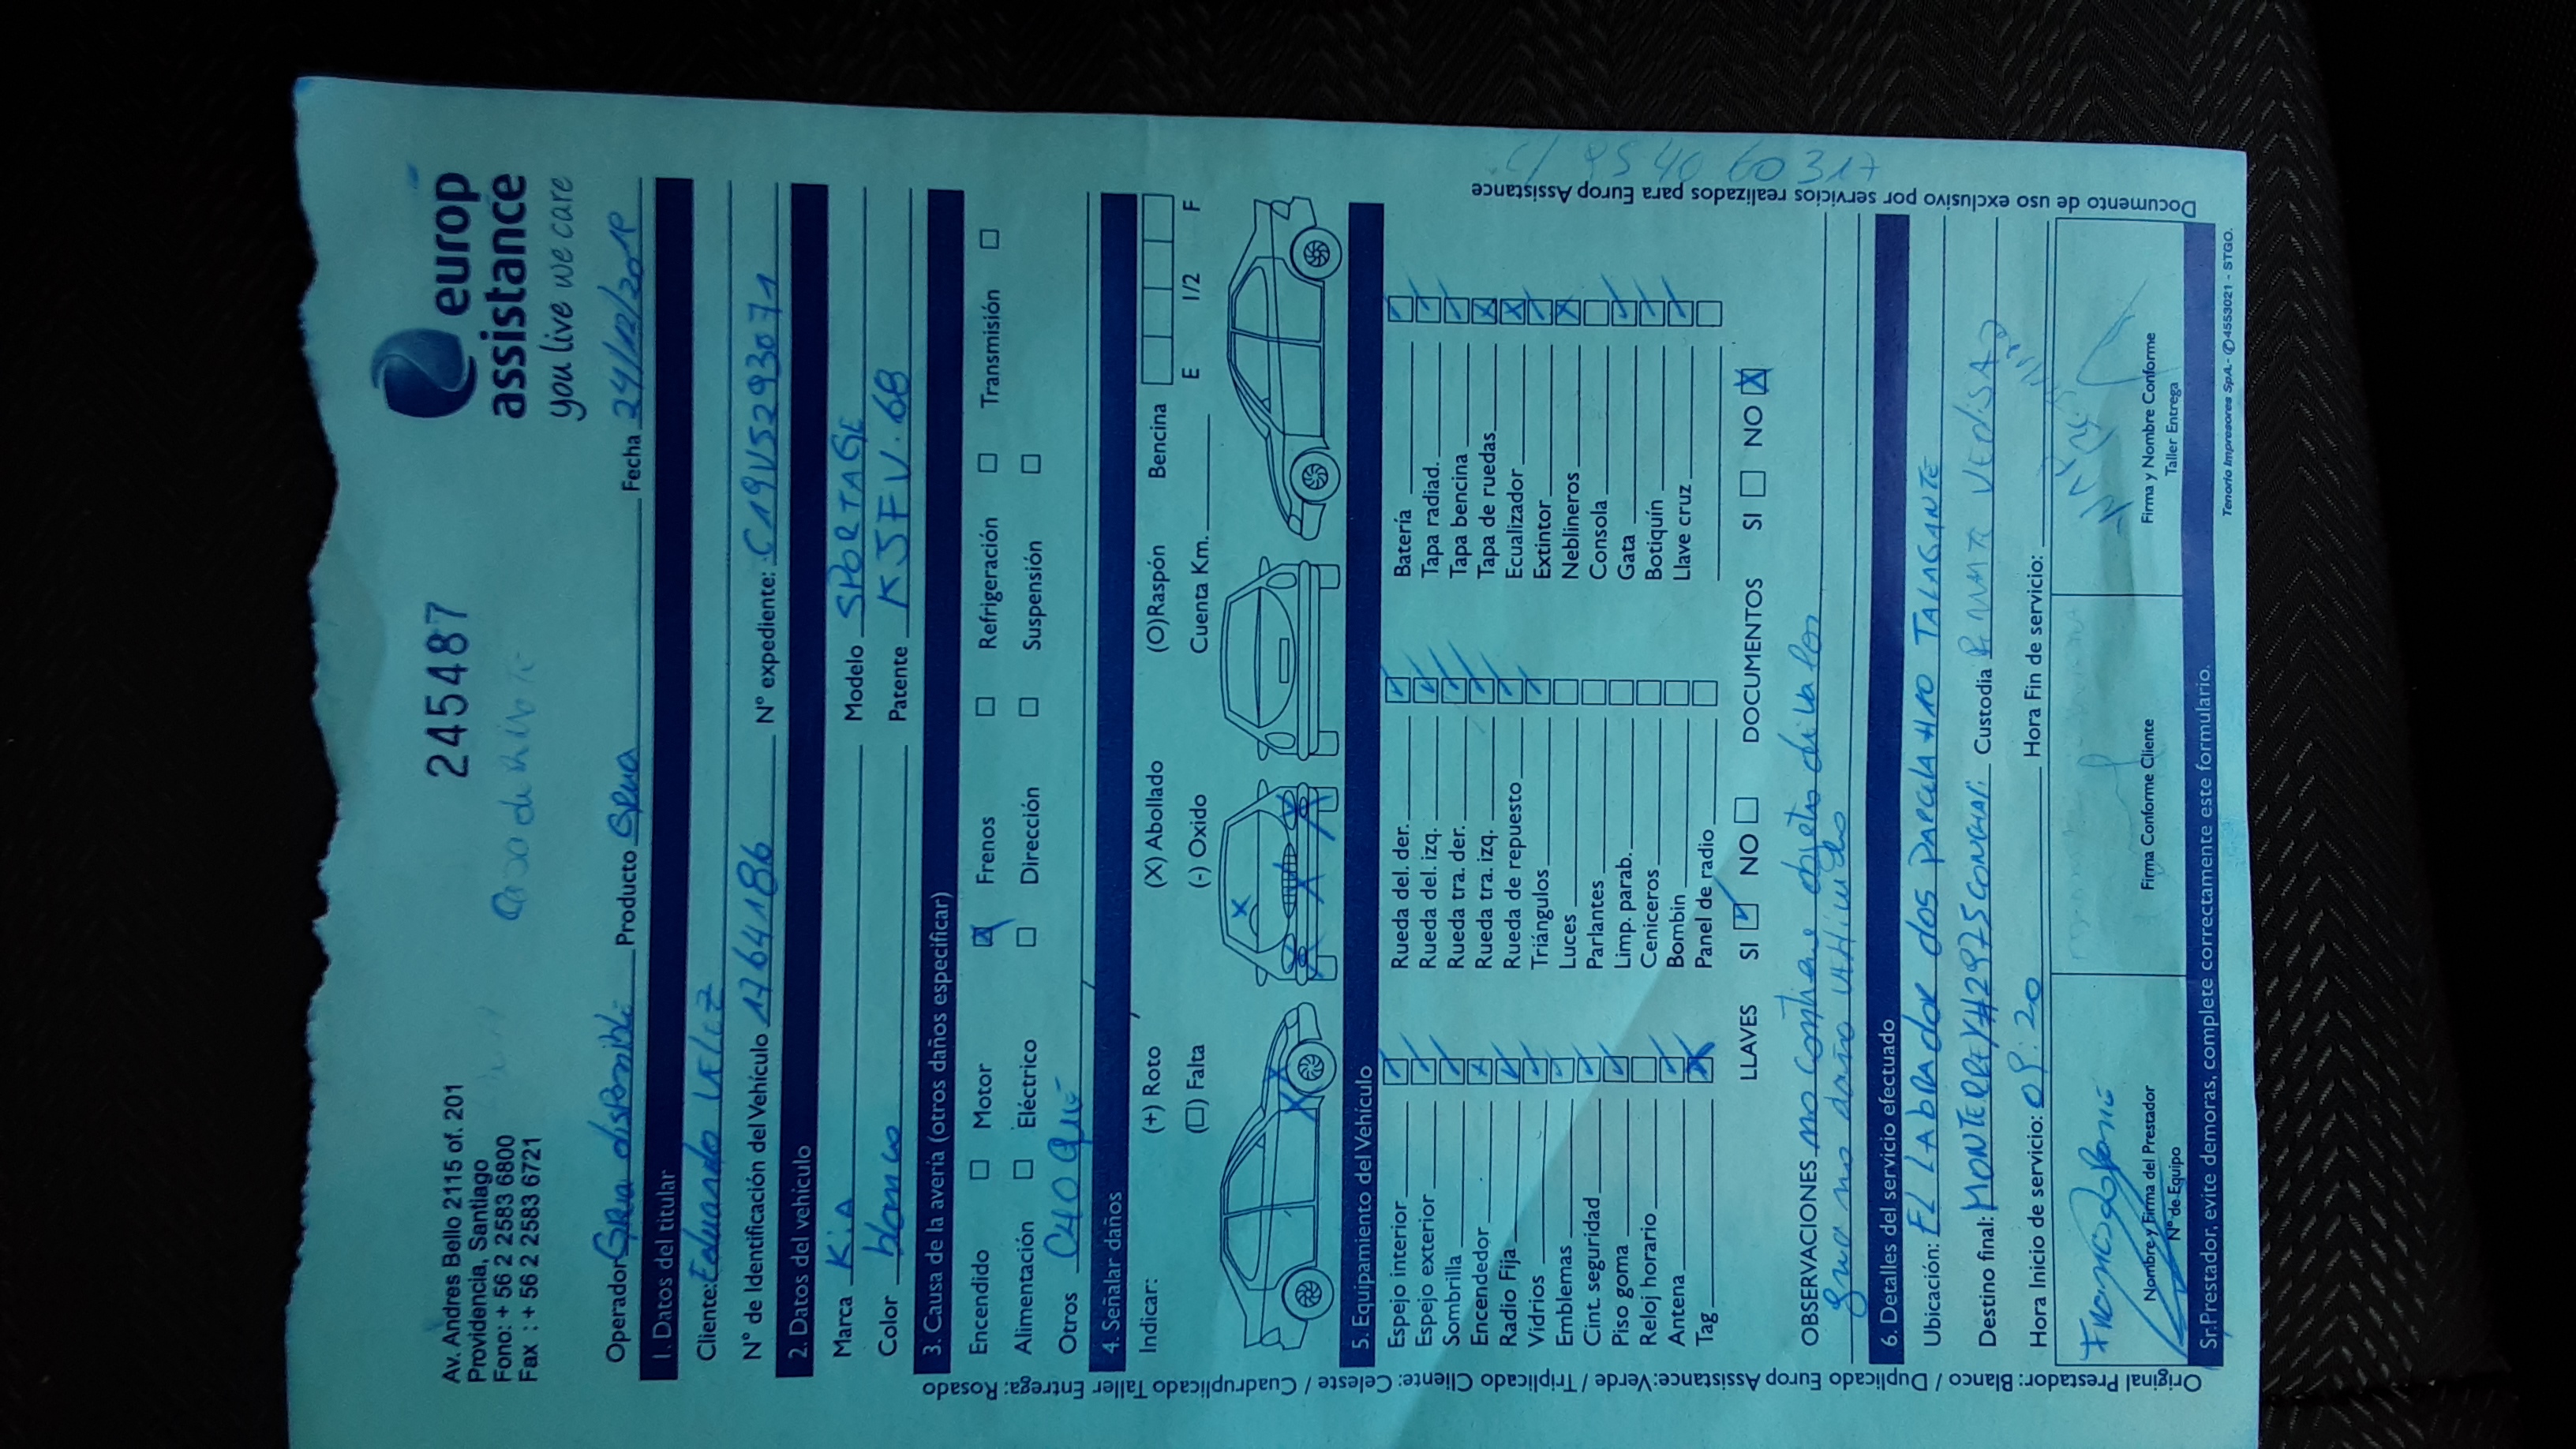 Av. Andres Bello 2115 of. 201
Providencia, Santiago
Fono: + 56 2 2583 6800
Fax : + 56 2 2583 6721
245487
europ
assistance
you live we care
Operador Grua disponible Producto Grua Fecha 24/12/2019
1. Datos del titular
Cliente: Eduardo VELIZ
N° de Identificación del Vehículo 17641186 N° expediente: C19V5293071
2. Datos del vehículo
Marca KiA Modelo SPORTAGE
Color blanco Patente KJFV.68
3. Causa de la avería (otros daños especificar)
Encendido Motor Frenos Refrigeración Transmisión
Alimentación Eléctrico Dirección Suspensión
Otros CHOQUE
4. Señalar daños
Indicar: (+) Roto (X) Abollado (O)Raspón Bencina
(□) Falta (-) Oxido Cuenta Km. E 1/2 F
5. Equipamiento del Vehículo
Espejo interior Rueda del. der. Batería
Espejo exterior Rueda del. izq. Tapa radiad.
Sombrilla Rueda tra. der. Tapa bencina
Encendedor Rueda tra. izq. Tapa de ruedas
Radio Fija Rueda de repuesto Ecualizador
Vidrios Triángulos Extintor
Emblemas Luces Neblineros
Cint. seguridad Parlantes Consola
Piso goma Limp. parab. Gata
Reloj horario Ceniceros Botiquín
Antena Bombin Llave cruz
Tag Panel de radio
LLAVES SI NO DOCUMENTOS SI NO
OBSERVACIONES no contiene objetos de valor
grua no daño vehiculo
6. Detalles del servicio efectuado
Ubicación: EL LAbRADOR dos PARCELA #10 TALAGANTE
Destino final: MONTERREY #2975 CONCHALI Custodia
Hora Inicio de servicio: 09:20 Hora Fin de servicio:
Nombre y Firma del Prestador
N° de Equipo
Firma Conforme Cliente
Firma y Nombre Conforme
Taller Entrega
Sr.Prestador, evite demoras, complete correctamente este formulario.
Tenorio Impresores SpA.- ✆4553021 - STGO.
Original Prestador: Blanco / Duplicado Europ Assistance:Verde / Triplicado Cliente: Celeste / Cuadruplicado Taller Entrega: Rosado
Documento de uso exclusivo por servicios realizados para Europ Assistance